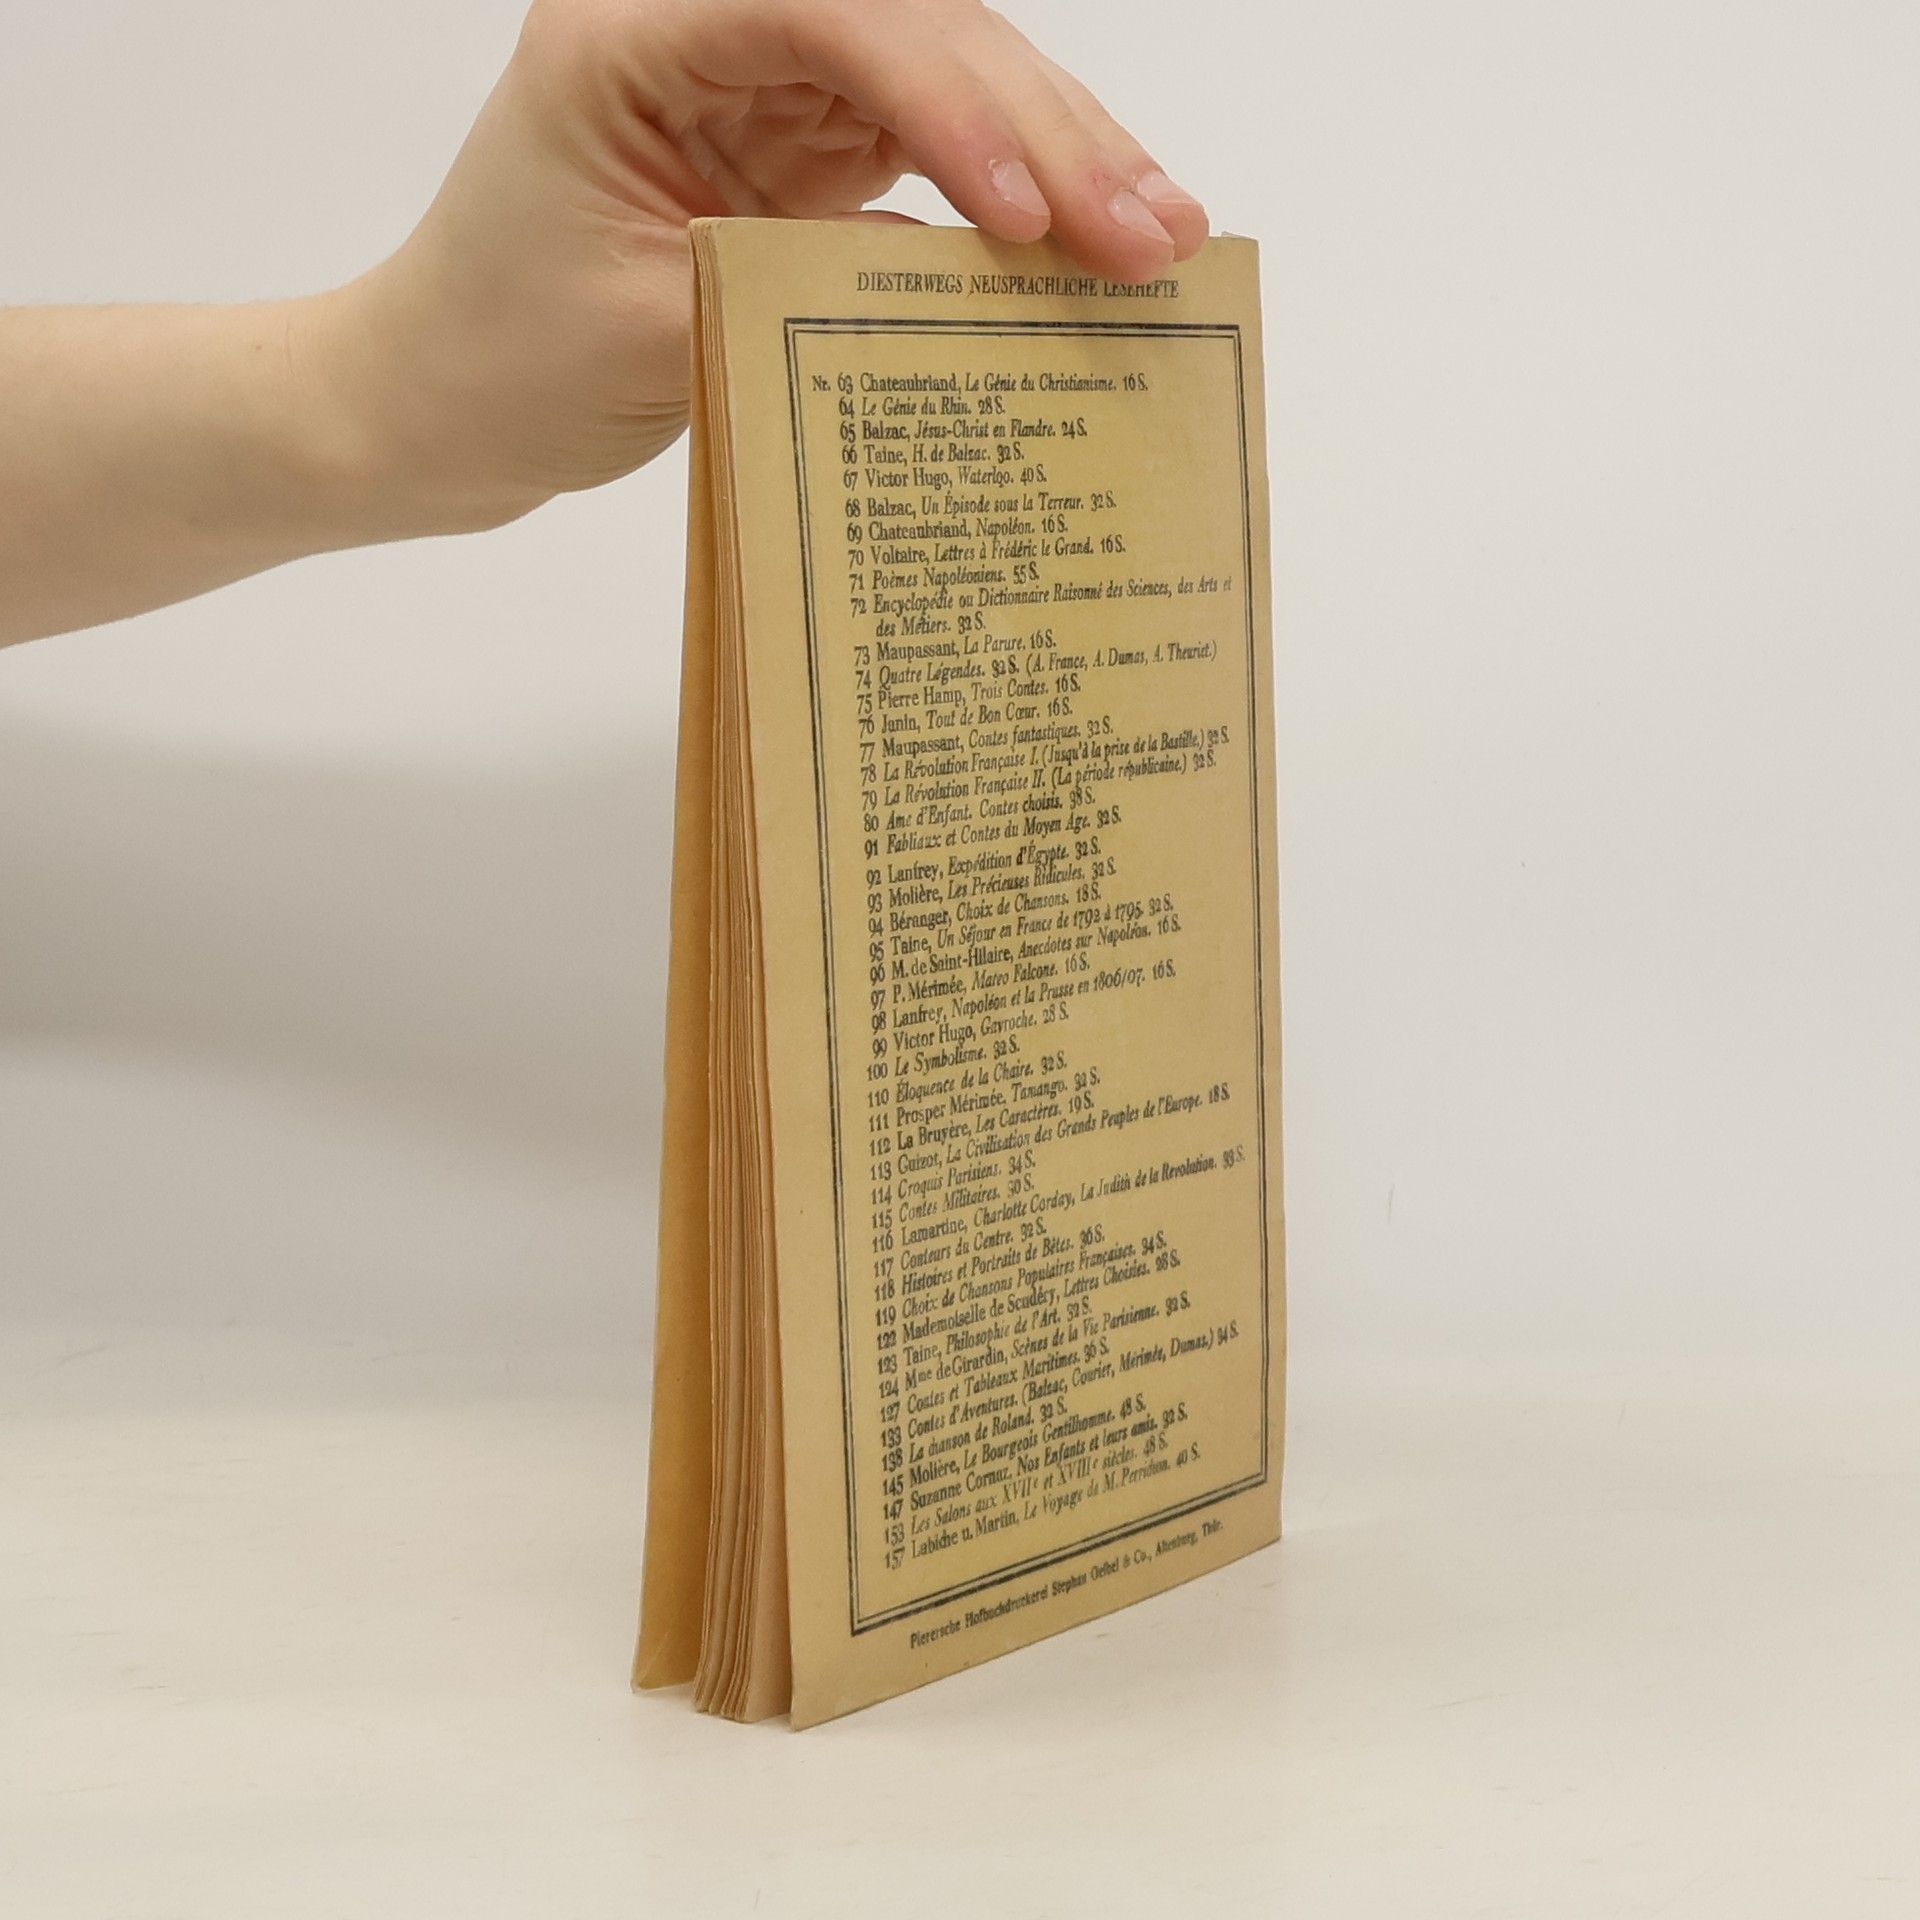 DIESTERWEGS NEUSPRACHLICHE LESEHEFTE
Nr. 63 Chateaubriand, Le Génie du Christianisme. 16 S.
64 Le Génie du Rhin. 28 S.
65 Balzac, Jésus-Christ en Flandre. 24 S.
66 Taine, H. de Balzac. 32 S.
67 Victor Hugo, Waterloo. 40 S.
68 Balzac, Un Épisode sous la Terreur. 32 S.
69 Chateaubriand, Napoléon. 16 S.
70 Voltaire, Lettres à Frédéric le Grand. 16 S.
71 Poèmes Napoléoniens. 55 S.
72 Encyclopédie ou Dictionnaire Raisonné des Sciences, des Arts et
des Métiers. 32 S.
73 Maupassant, La Parure. 16 S.
74 Quatre Légendes. 32 S. (A. France, A. Dumas, A. Theuriet.)
75 Pierre Hamp, Trois Contes. 16 S.
76 Janin, Tout de Bon Cœur. 16 S.
77 Maupassant, Contes fantastiques. 32 S.
78 La Révolution Française I. (Jusqu'à la prise de la Bastille.) 32 S.
79 La Révolution Française II. (La période républicaine.) 32 S.
80 Ame d'Enfant. Contes choisis. 38 S.
91 Fabliaux et Contes du Moyen Age. 32 S.
92 Lanfrey, Expédition d'Égypte. 32 S.
93 Molière, Les Précieuses Ridicules. 32 S.
94 Béranger, Choix de Chansons. 18 S.
95 Taine, Un Séjour en France de 1792 à 1795. 32 S.
96 M. de Saint-Hilaire, Anecdotes sur Napoléon. 16 S.
97 P. Mérimée, Mateo Falcone. 16 S.
98 Lanfrey, Napoléon et la Prusse en 1806/07. 16 S.
99 Victor Hugo, Gavroche. 28 S.
100 Le Symbolisme. 32 S.
110 Éloquence de la Chaire. 32 S.
111 Prosper Mérimée. Tamango. 32 S.
112 La Bruyère, Les Caractères. 19 S.
113 Guizot, La Civilisation des Grands Peuples de l'Europe. 18 S.
114 Croquis Parisiens. 34 S.
115 Contes Militaires. 30 S.
116 Lamartine, Charlotte Corday, La Judith de la Revolution. 33 S.
117 Conteurs du Centre. 32 S.
118 Histoires et Portraits de Bêtes. 36 S.
119 Choix de Chansons Populaires Françaises. 34 S.
122 Mademoiselle de Scudéry, Lettres Choisies. 28 S.
123 Taine, Philosophie de l'Art. 32 S.
124 Mme de Girardin, Scènes de la Vie Parisienne. 32 S.
127 Contes et Tableaux Maritimes. 36 S.
133 Contes d'Aventures. (Balzac, Courier, Mérimée, Dumas.) 34 S.
138 La chanson de Roland. 32 S.
145 Molière, Le Bourgeois Gentilhomme. 48 S.
147 Suzanne Cornaz, Nos Enfants et leurs amis. 32 S.
153 Les Salons aux XVIIe et XVIIIe siècles. 48 S.
157 Labiche u. Martin, Le Voyage de M. Perrichon. 40 S.
Pierersche Hofbuchdruckerei Stephan Geibel & Co., Altenburg, Thür.